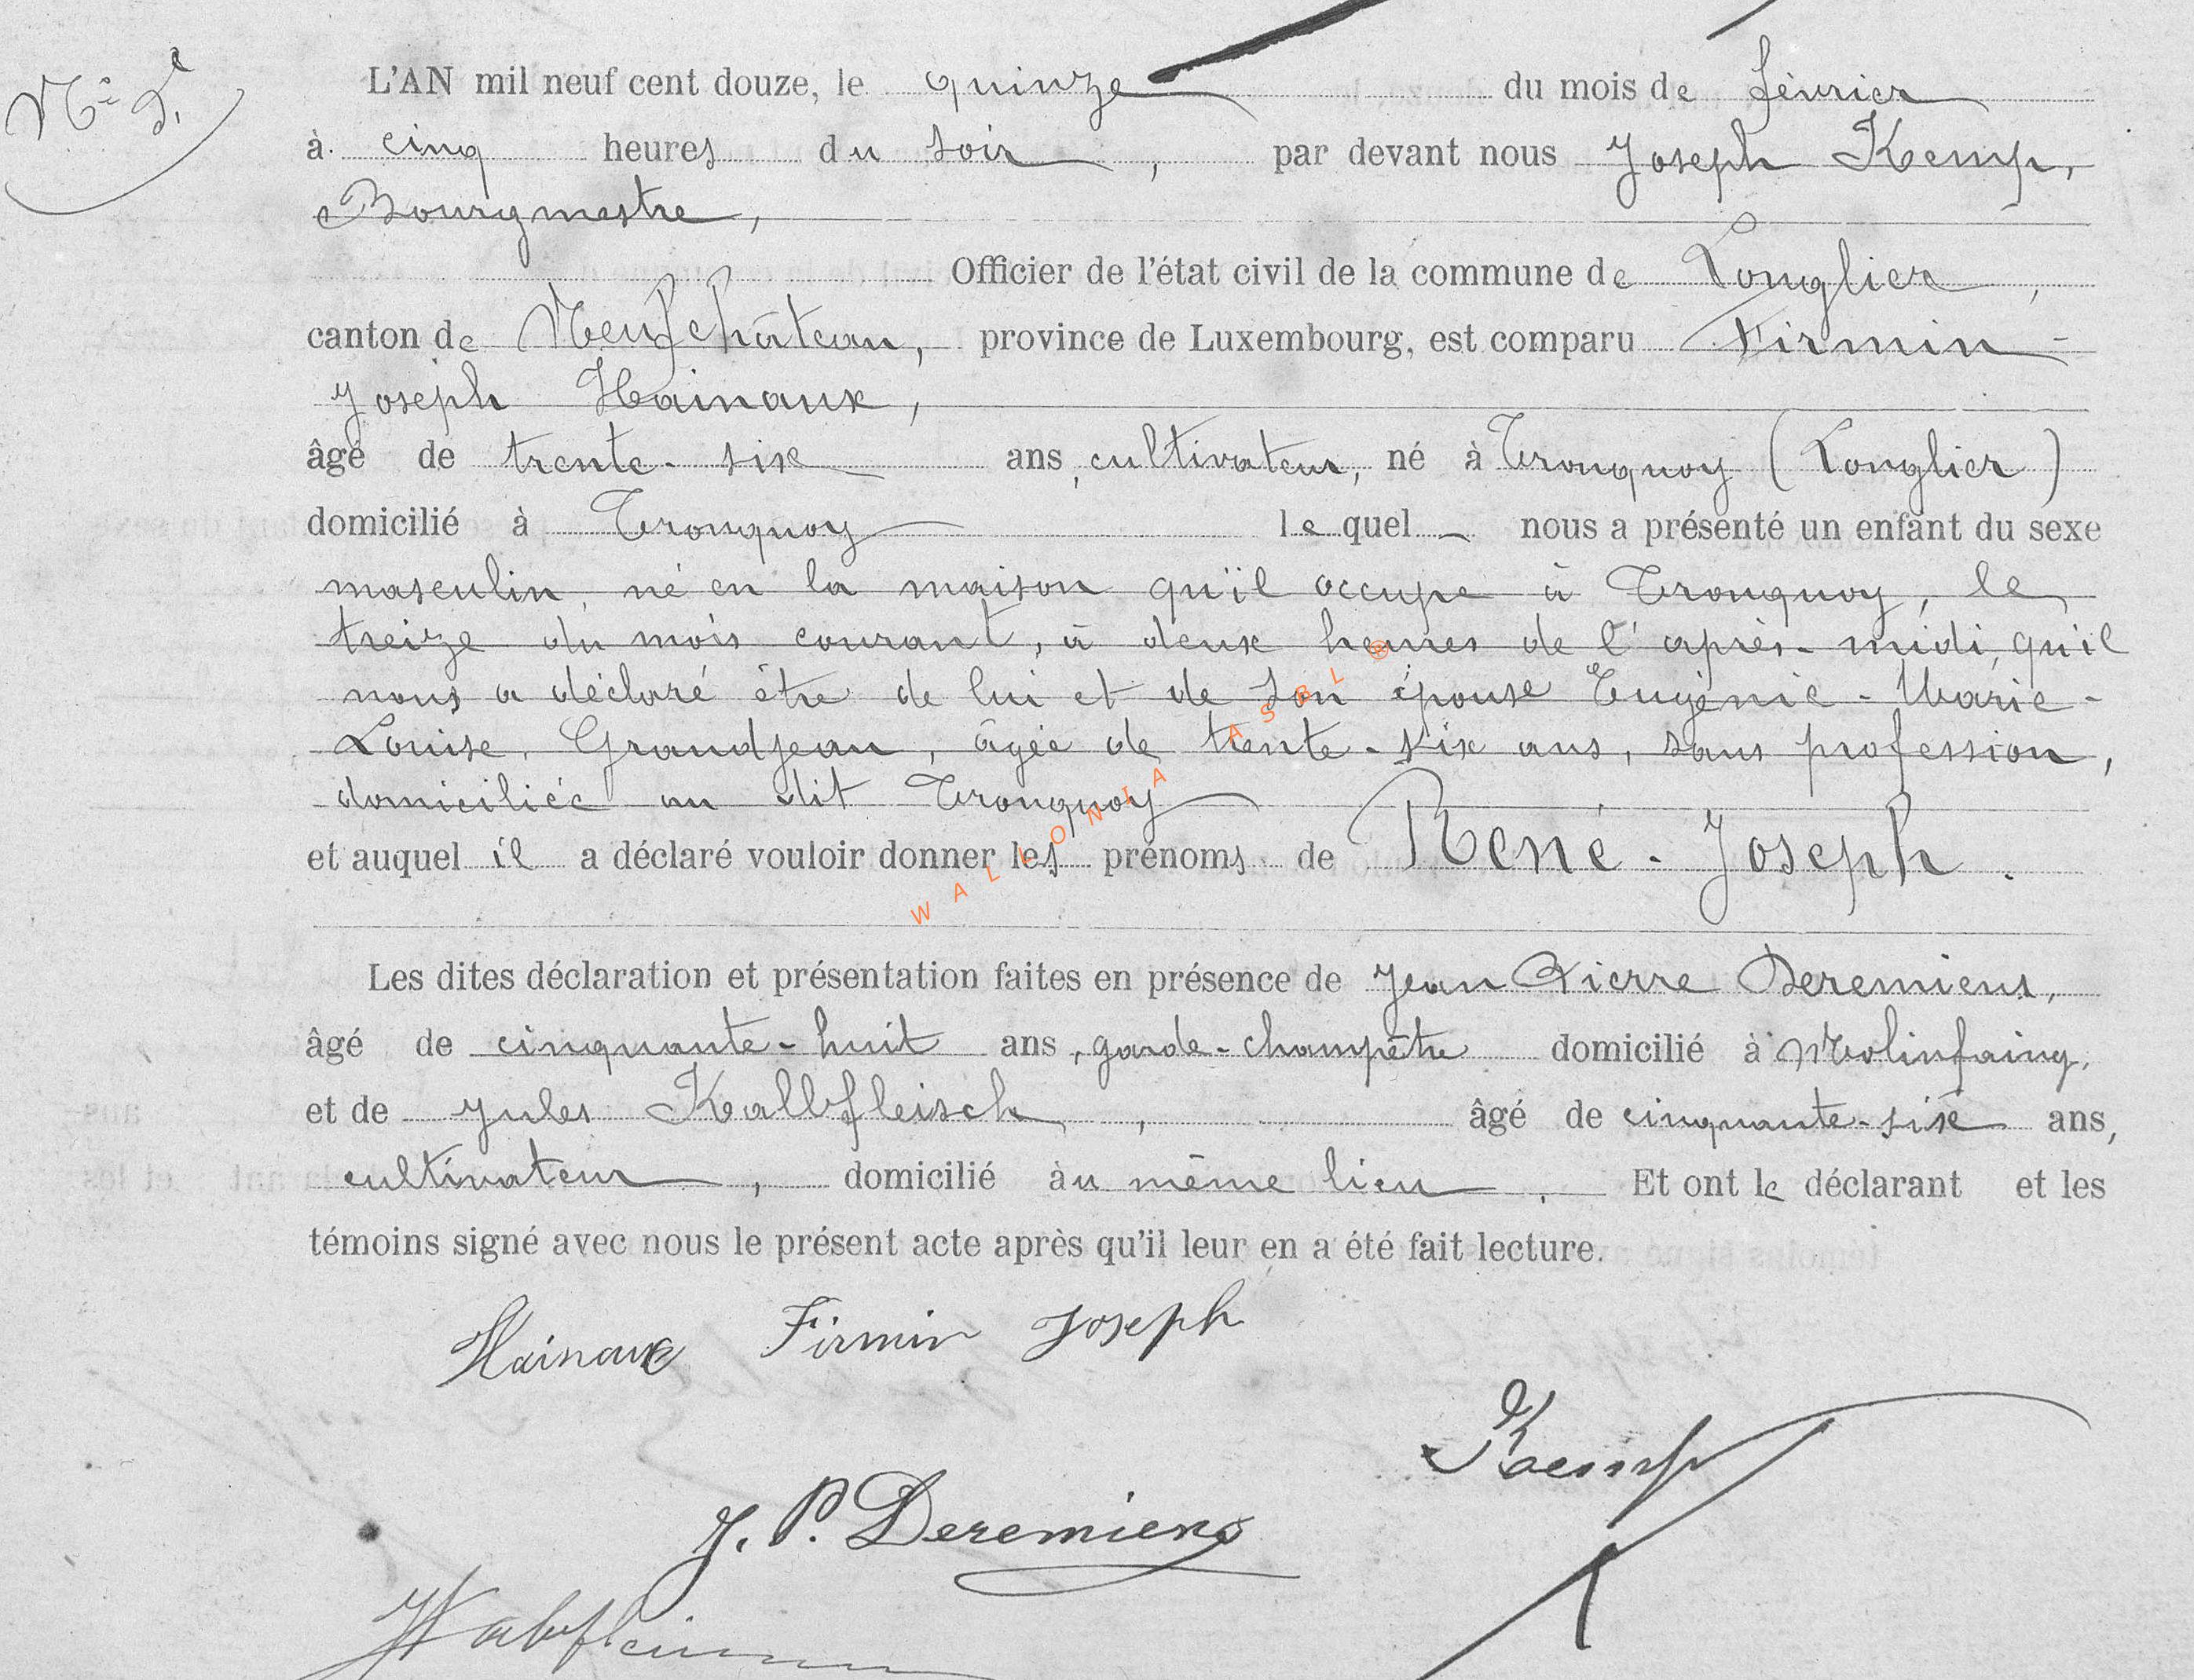 L'AN mil neuf cent douze, le quinze du mois de février
à cinq heures du soir, par devant nous Joseph Kemp,
Bourgmestre,
Officier de l'état civil de la commune de Longlier,
canton de Neufchâteau, province de Luxembourg, est comparu Firmin-
Joseph Hainaux,
âgé de trente-six ans, cultivateur, né à Tronquoy (Longlier)
domicilié à Tronquoy lequel nous a présenté un enfant du sexe
masculin, né en la maison qu'il occupe à Tronquoy, le
treize du mois courant, à deux heures de l'après-midi, qu'il
nous a déclaré être de lui et de son épouse Eugénie-Marie-
Louise, Grandjean, âgée de trente-six ans, sans profession,
domiciliée au dit Tronquoy
et auquel il a déclaré vouloir donner les prénoms de René-Joseph.
WALLONIA ASBL ®
Les dites déclaration et présentation faites en présence de Jean Pierre Deremiens,
âgé de cinquante-huit ans, garde-champêtre domicilié à Molinfaing,
et de Jules Kalbfleisch, âgé de cinquante-six ans,
cultivateur, domicilié au même lieu. Et ont le déclarant et les
témoins signé avec nous le présent acte après qu'il leur en a été fait lecture.
Hainaux Firmin Joseph
Kemp
J. P. Deremiens